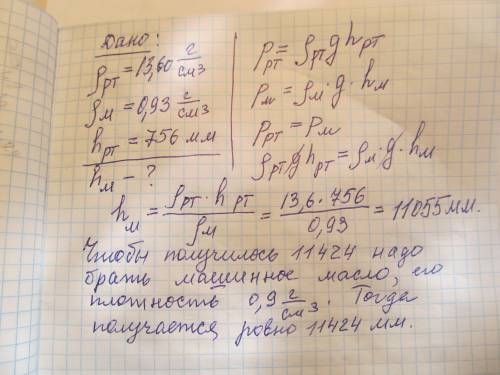 Дано:
ρрт = 13,60 г/см3
ρм = 0,93 г/см3
hрт = 756 мм
hм - ?
Pрт = ρрт g hрт
Pм = ρм · g · hм
Pрт = Pм
ρрт g hрт = ρм · g · hм
hм = ρрт · hрт / ρм = 13,6 · 756 / 0,93 = 11055 мм.
Чтобы получилось 11424 надо
брать машинное масло, его
плотность 0,9 г/см3. Тогда
получается ровно 11424 мм.